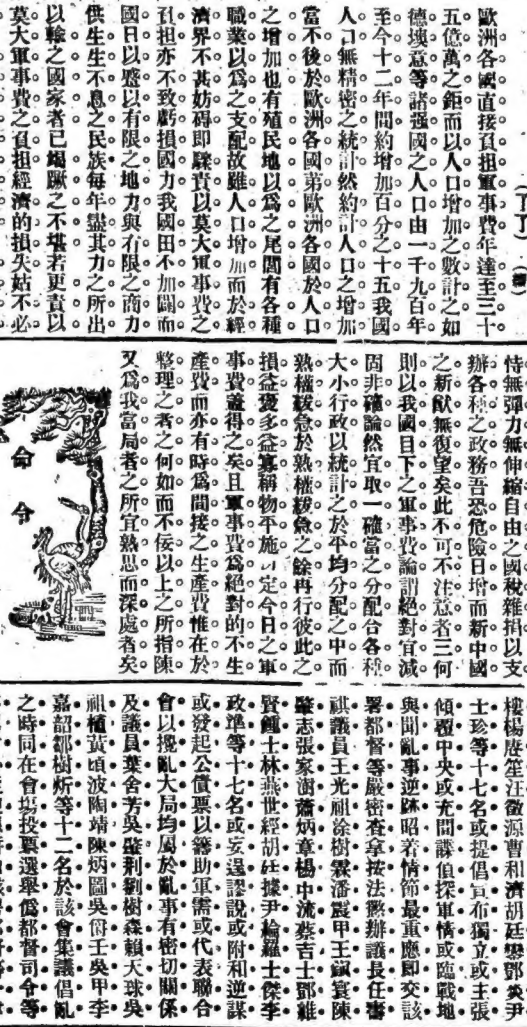 (丁丁) (續)
歐洲各國直接負担軍事費年達至三十
五億萬之鉅而以人口增加之數計之如
德墺意等諸强國之人口由一千九百年
至今十二年間約增加百分之十五我國
人口無精密之統計然約計人口之增加
當不後於歐洲各國第歐洲各國於人口
之增加也有殖民地以爲之尾閭有各種
職業以爲之支配故雖人口增加而於經
濟界不甚妨碍即驟責以莫大軍事費之
負担亦不致虧損國力我國田不加闢而
國日以蹙以有限之地力與有限之商力
供生生不息之民族每年盡其力之所出
以輸之國家者已竭蹶之不堪若更責以
莫大軍事費之負担經濟的損失姑不必
恃無彈力無伸縮自由之國稅雜捐以支
辦各種之政務吾恐危險日增而新中國
之新猷無復望矣此不可不注意者三何
則以我國目下之軍事費論謂絕對宜減
固非確論然宜取一確當之分配合各種
大小行政以統計之於平均分配之中而
熟權緩急於熟權緩急之餘再行彼此之
損益裒多益寡稱物平施以定今日之軍
事費蓋得之矣且軍事費爲絕對的不生
產費而亦有時爲間接之生產費惟在於
整理之者之何如而不佞以上之所指陳
又爲我當局者之所宜熟思而深處者矣
命令
樓楊賡笙汪徵源曹和濟胡廷鑾鄧英尹
士珍等十七名或提倡宣布獨立或主張
傾覆中央或充間諜偵探軍情或臨戰地
與聞亂事逆跡昭着情節最重應即交該
署都督等嚴密查拿按法懲辦議長任壽
祺議員王光祖涂樹霖潘震甲王嵗寰陳
肇志張家澍蕭炳章楊中流蔡吉士鄧維
賢鍾士林燕世經胡廷據尹綸羅士傑李
政準等十七名或妄逞謬說或附和逆謀
或發起公債票以籌助軍需或代表聯合
會以攪亂大局均屬於亂事有密切關係
及議員葉舍芳吳礎荆劉樹森賴天球吳
祖植黃頃波陶靖陳炳圖吳侟王吳甲李
嘉韶鄒樹炘等十二名於該會集議倡亂
之時同在會塲投票選舉僞都督司令等